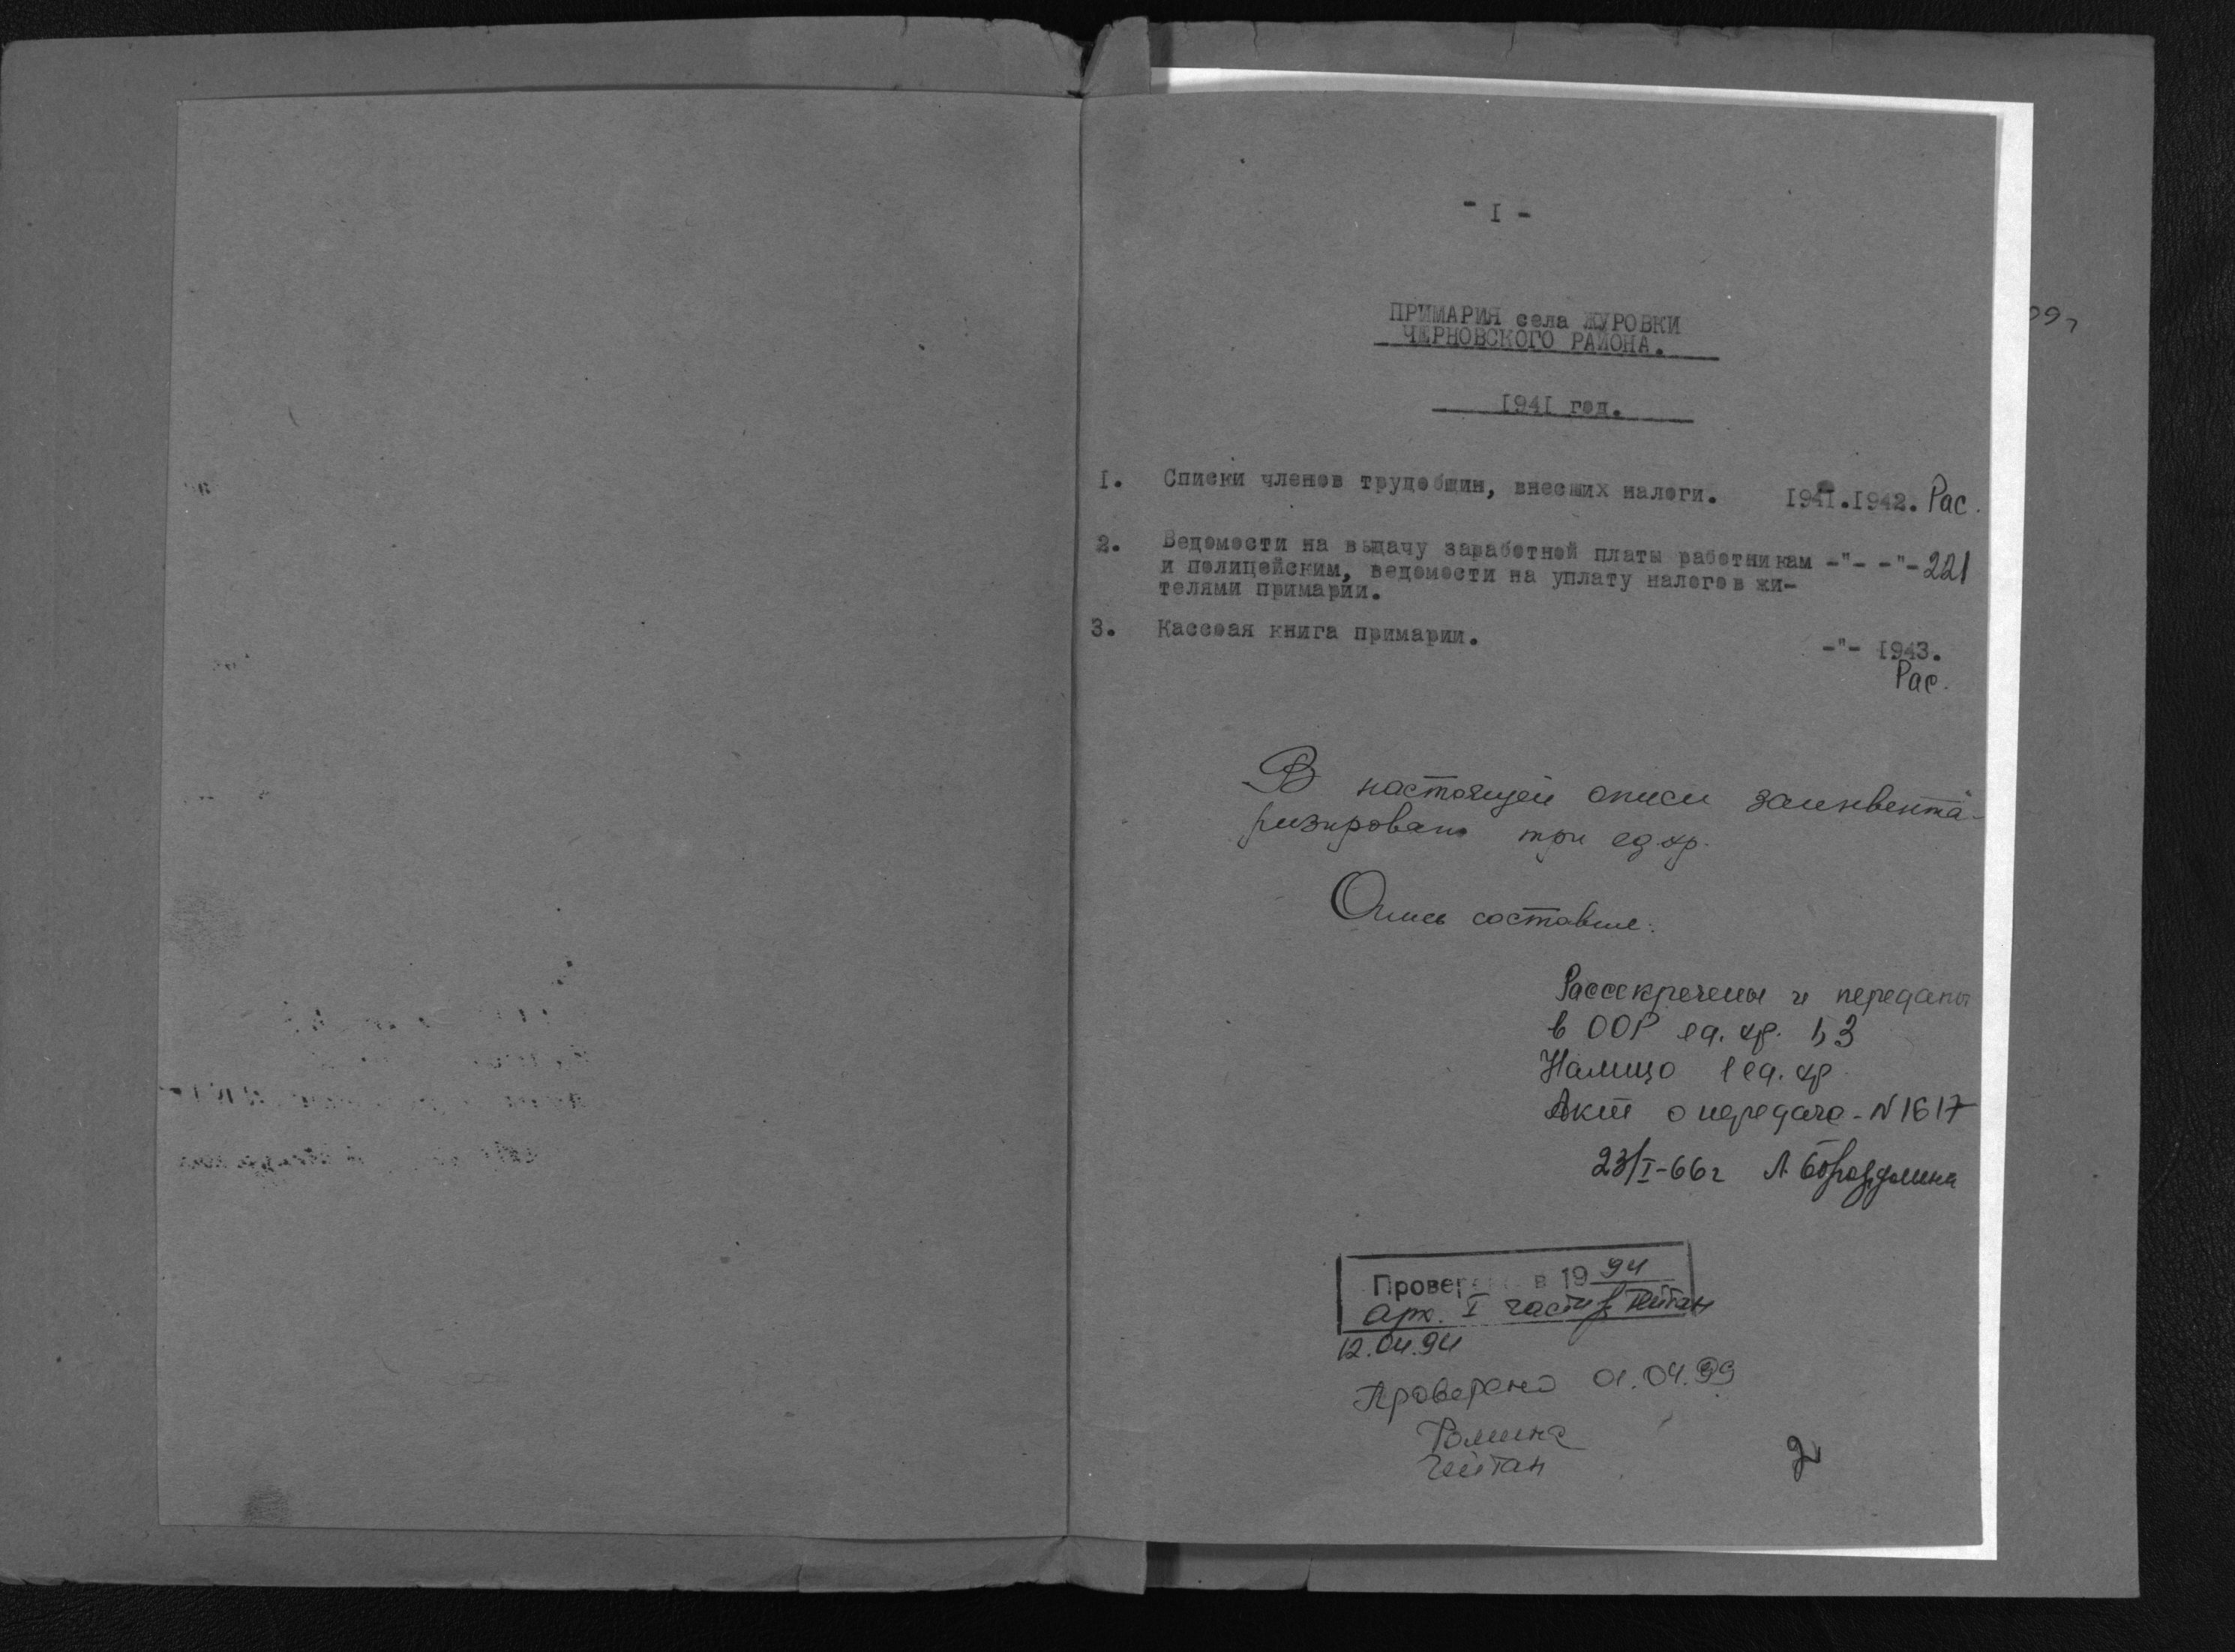 - I -
ПРИМАРИЯ села ЖУРОВКИ
ЧЕРНОВСКОГО РАЙОНА.
I94I год.
I. Списки членов трудобщин, внесших налоги. I94I.I942. Рас.
2. Ведомости на выдачу заработной платы работникам -"- -"- 221
и полицейским, ведомости на уплату налогов жи-
телями примарии.
3. Кассоая книга примарии.
-"- I943.
Рас.
В настоящей описи заинвента-
ризировано три ед.хр.
Опись составил:
Рассекречены и переданы
в ООР ед. хр. 1,3
Налицо 1 ед. хр
Акт о передаче - N 1617
23/I-66г Л. Бороздина
Проверено в 19 94
Арх. I части
12.04.94
Проверено 01.04.99
2